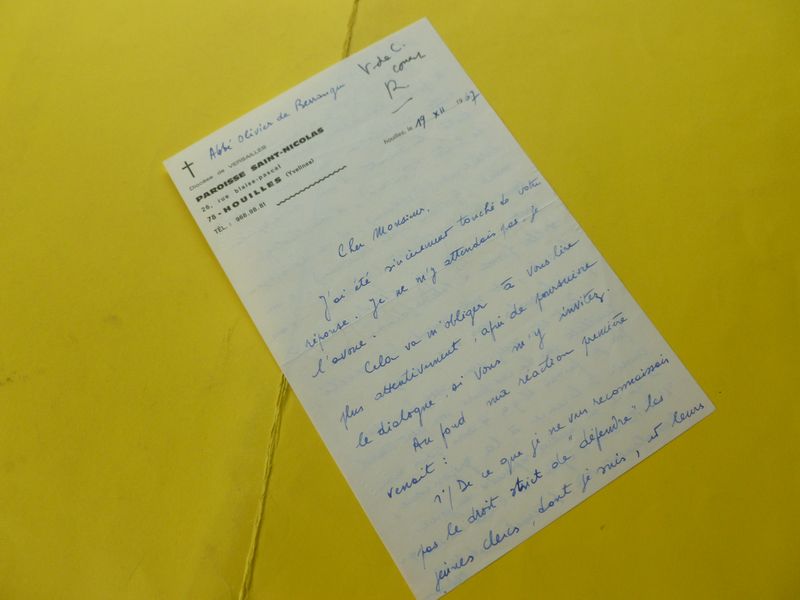 Abbé Olivier de Berranger
V. de C.
R
Diocèse de VERSAILLES
PAROISSE SAINT-NICOLAS
26, rue blaise-pascal
78 - HOUILLES (Yvelines)
TÉL : 968.98.81
houilles, le 19 XII 1967
Cher Monsieur,
J'ai été sincèrement touché de votre
réponse. Je ne m'y attendais pas, je
l'avoue.
Cela va m'obliger à vous lire
plus attentivement, afin de poursuivre
le dialogue si vous m'y invitez.
Au fond ma réaction première
venait :
1°/ De ce que je ne vous reconnaissais
pas le droit strict de "défendre" les
jeunes clercs, dont je suis, et leurs